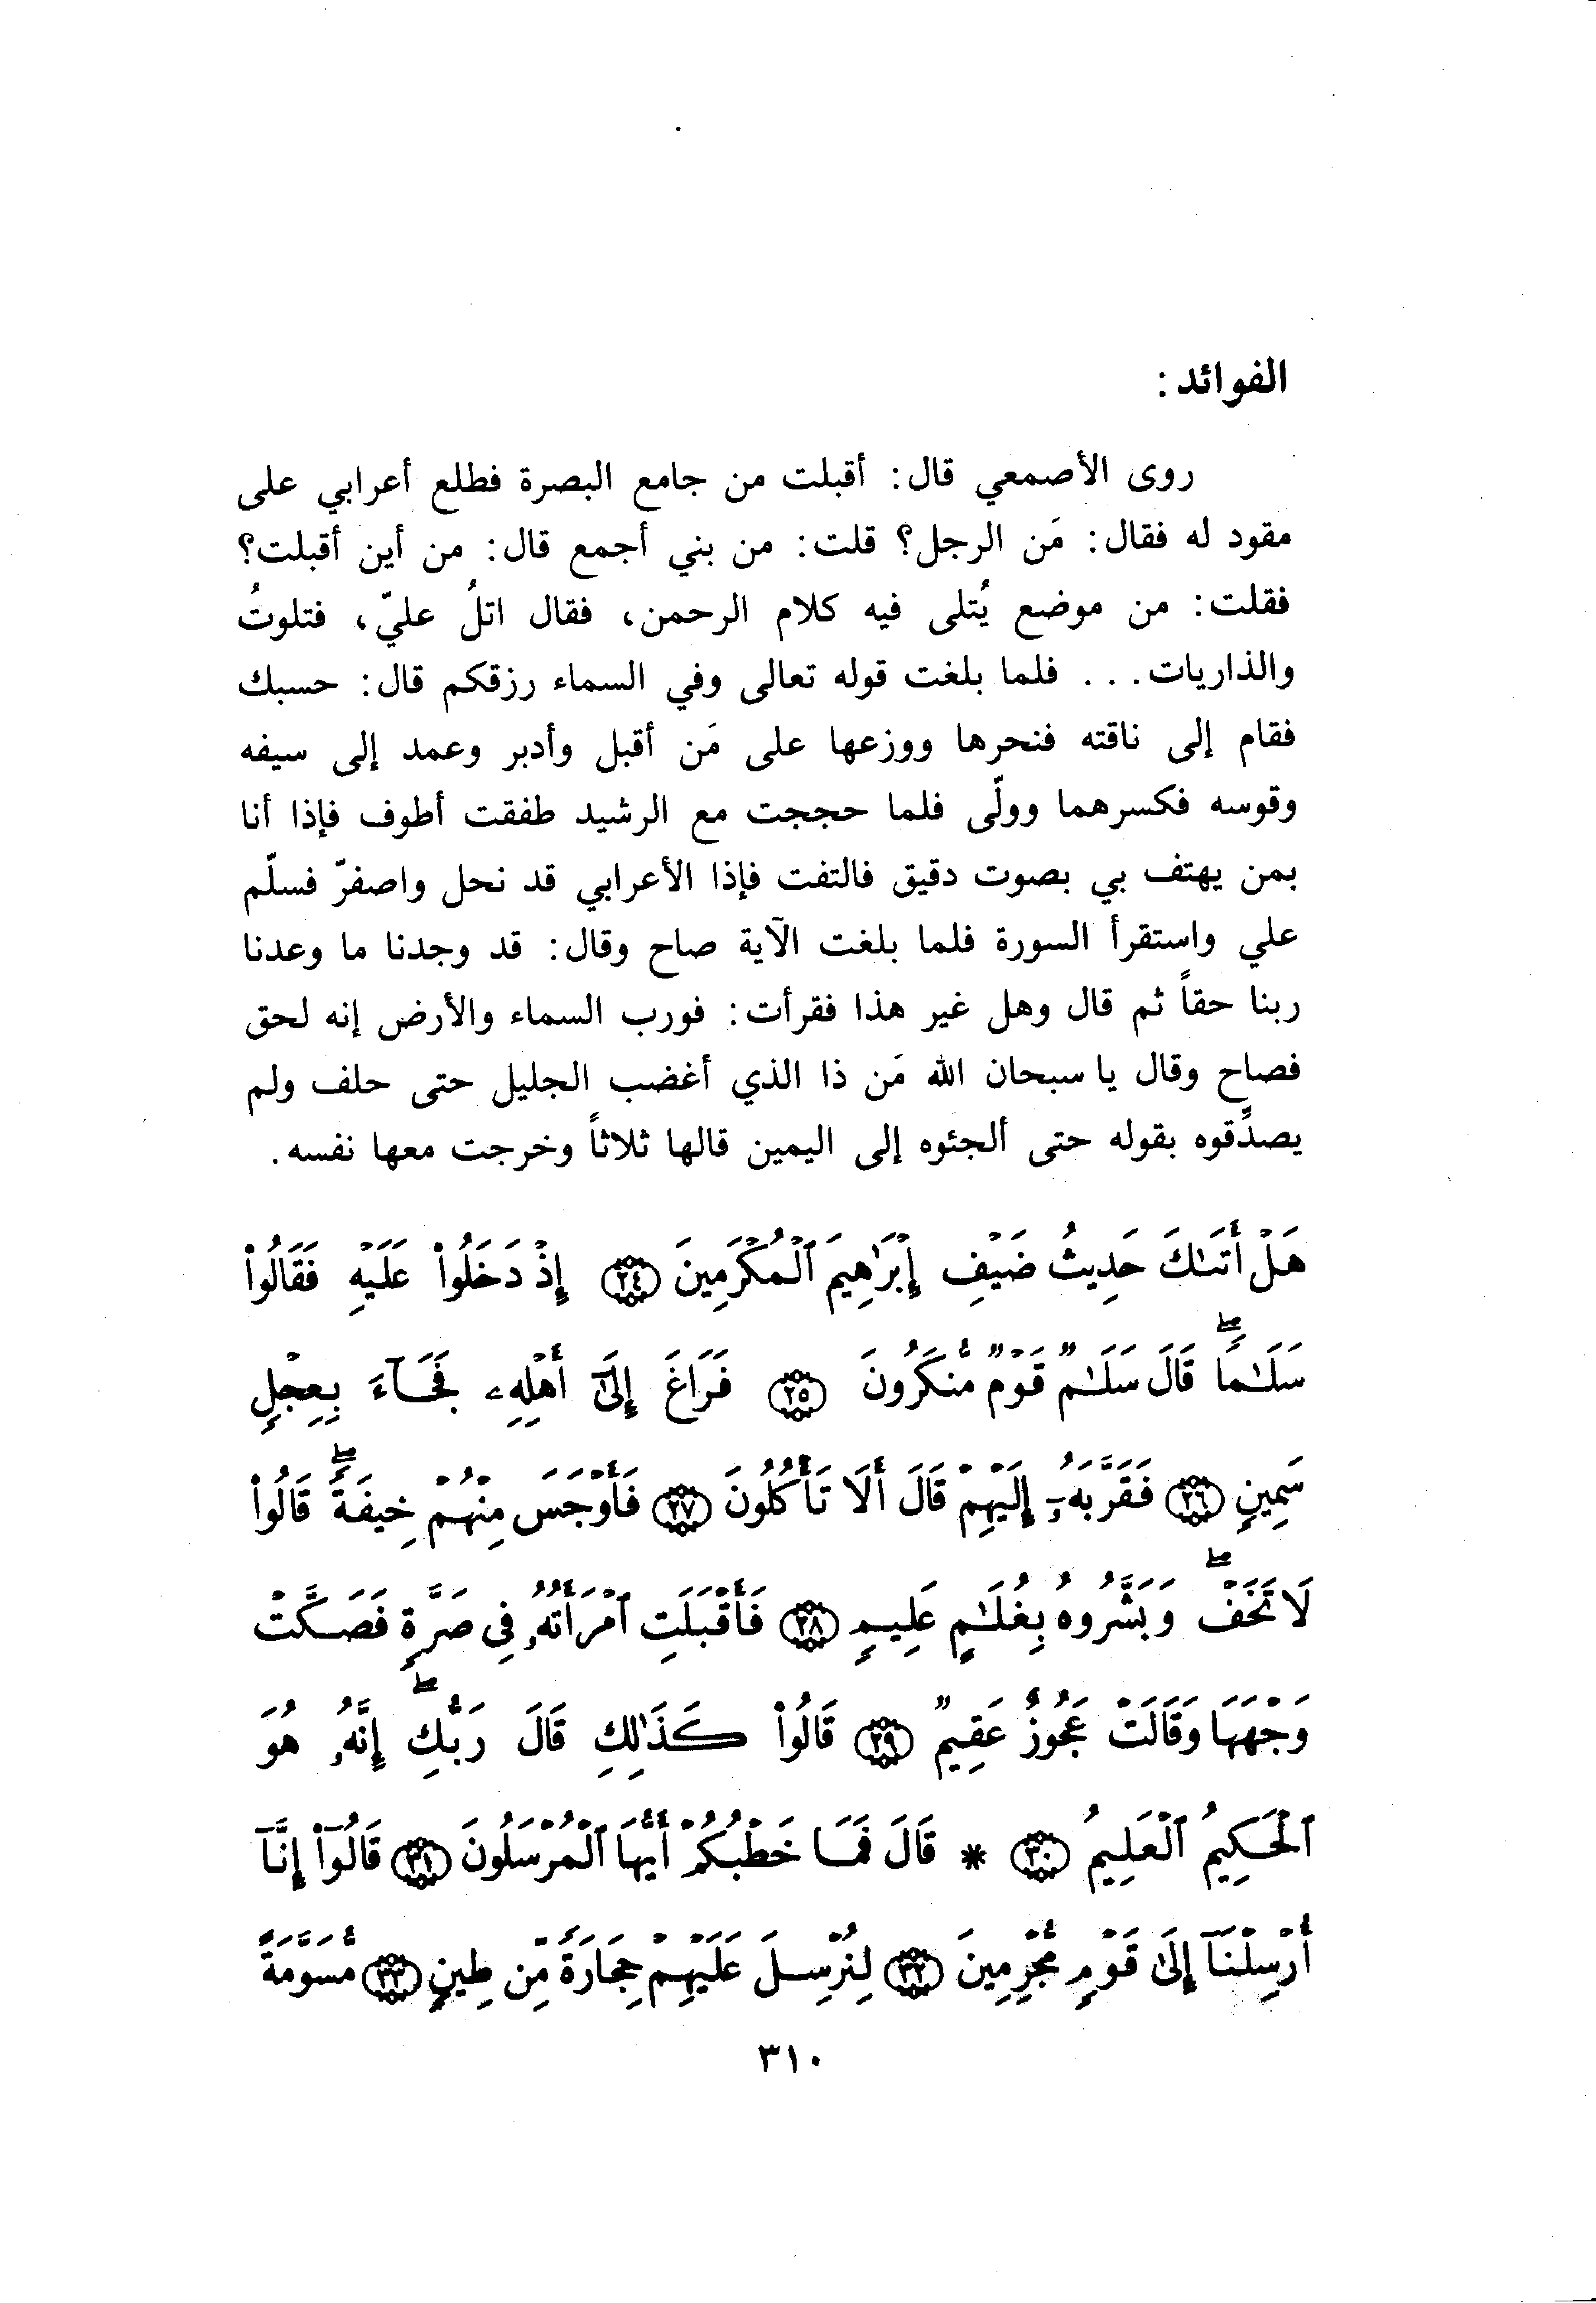 الفوائد:
روى الأصمعي قال: أقبلت من جامع البصرة فطلع أعرابي على
مقود له فقال: مَن الرجل؟ قلت: من بني أجمع قال: من أين أقبلت؟
فقلت: من موضع يُتلى فيه كلام الرحمن، فقال اتلُ عليّ، فتلوتُ
والذاريات... فلما بلغت قوله تعالى وفي السماء رزقكم قال: حسبك
فقام إلى ناقته فنحرها ووزعها على مَن أقبل وأدبر وعمد إلى سيفه
وقوسه فكسرهما وولّى فلما حججت مع الرشيد طفقت أطوف فإذا أنا
بمن يهتف بي بصوت دقيق فالتفت فإذا الأعرابي قد نحل واصفرّ فسلّم
علي واستقرأ السورة فلما بلغت الآية صاح وقال: قد وجدنا ما وعدنا
ربنا حقاً ثم قال وهل غير هذا فقرأت: فورب السماء والأرض إنه لحق
فصاح وقال يا سبحان الله مَن ذا الذي أغضب الجليل حتى حلف ولم
يصدّقوه بقوله حتى ألجئوه إلى اليمين قالها ثلاثاً وخرجت معها نفسه.
هَلْ أَتَىٰكَ حَدِيثُ ضَيْفِ إِبْرَٰهِيمَ ٱلْمُكْرَمِينَ ٢٤ إِذْ دَخَلُوا۟ عَلَيْهِ فَقَالُوا۟
سَلَـٰمًا ۖ قَالَ سَلَـٰمٌ قَوْمٌ مُّنكَرُونَ ٢٥ فَرَاغَ إِلَىٰٓ أَهْلِهِۦ فَجَآءَ بِعِجْلٍ
سَمِينٍ ٢٦ فَقَرَّبَهُۥٓ إِلَيْهِمْ قَالَ أَلَا تَأْكُلُونَ ٢٧ فَأَوْجَسَ مِنْهُمْ خِيفَةً ۖ قَالُوا۟
لَا تَخَفْ ۖ وَبَشَّرُوهُ بِغُلَـٰمٍ عَلِيمٍ ٢٨ فَأَقْبَلَتِ ٱمْرَأَتُهُۥ فِى صَرَّةٍ فَصَكَّتْ
وَجْهَهَا وَقَالَتْ عَجُوزٌ عَقِيمٌ ٢٩ قَالُوا۟ كَذَٰلِكِ قَالَ رَبُّكِ ۖ إِنَّهُۥ هُوَ
ٱلْحَكِيمُ ٱلْعَلِيمُ ٣٠ * قَالَ فَمَا خَطْبُكُمْ أَيُّهَا ٱلْمُرْسَلُونَ ٣١ قَالُوٓا۟ إِنَّآ
أُرْسِلْنَآ إِلَىٰ قَوْمٍ مُّجْرِمِينَ ٣٢ لِنُرْسِلَ عَلَيْهِمْ حِجَارَةً مِّن طِينٍ ٣٣ مُّسَوَّمَةً
٣١٠